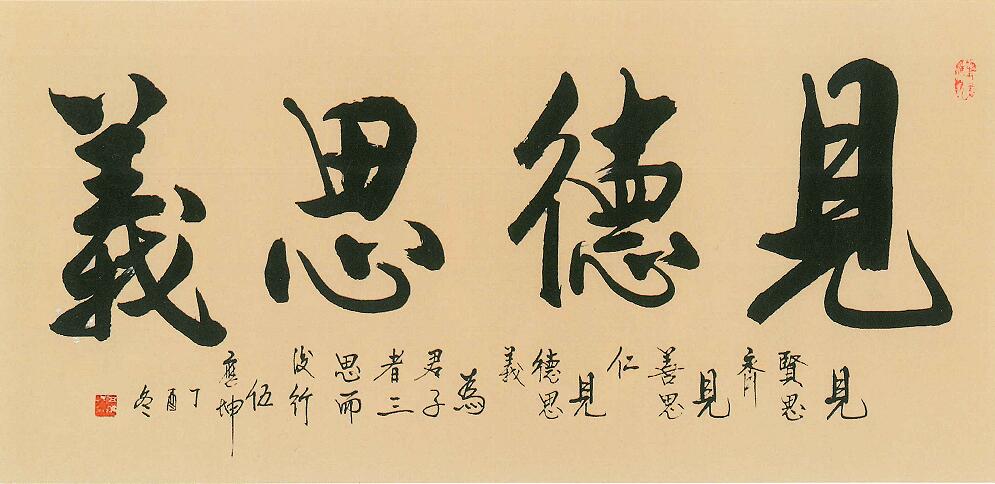 見德思義
見
賢思
齊
見
善思
仁
見
德思
義
為
君子
者三
思而
後行
伍
應坤
丁
酉
冬